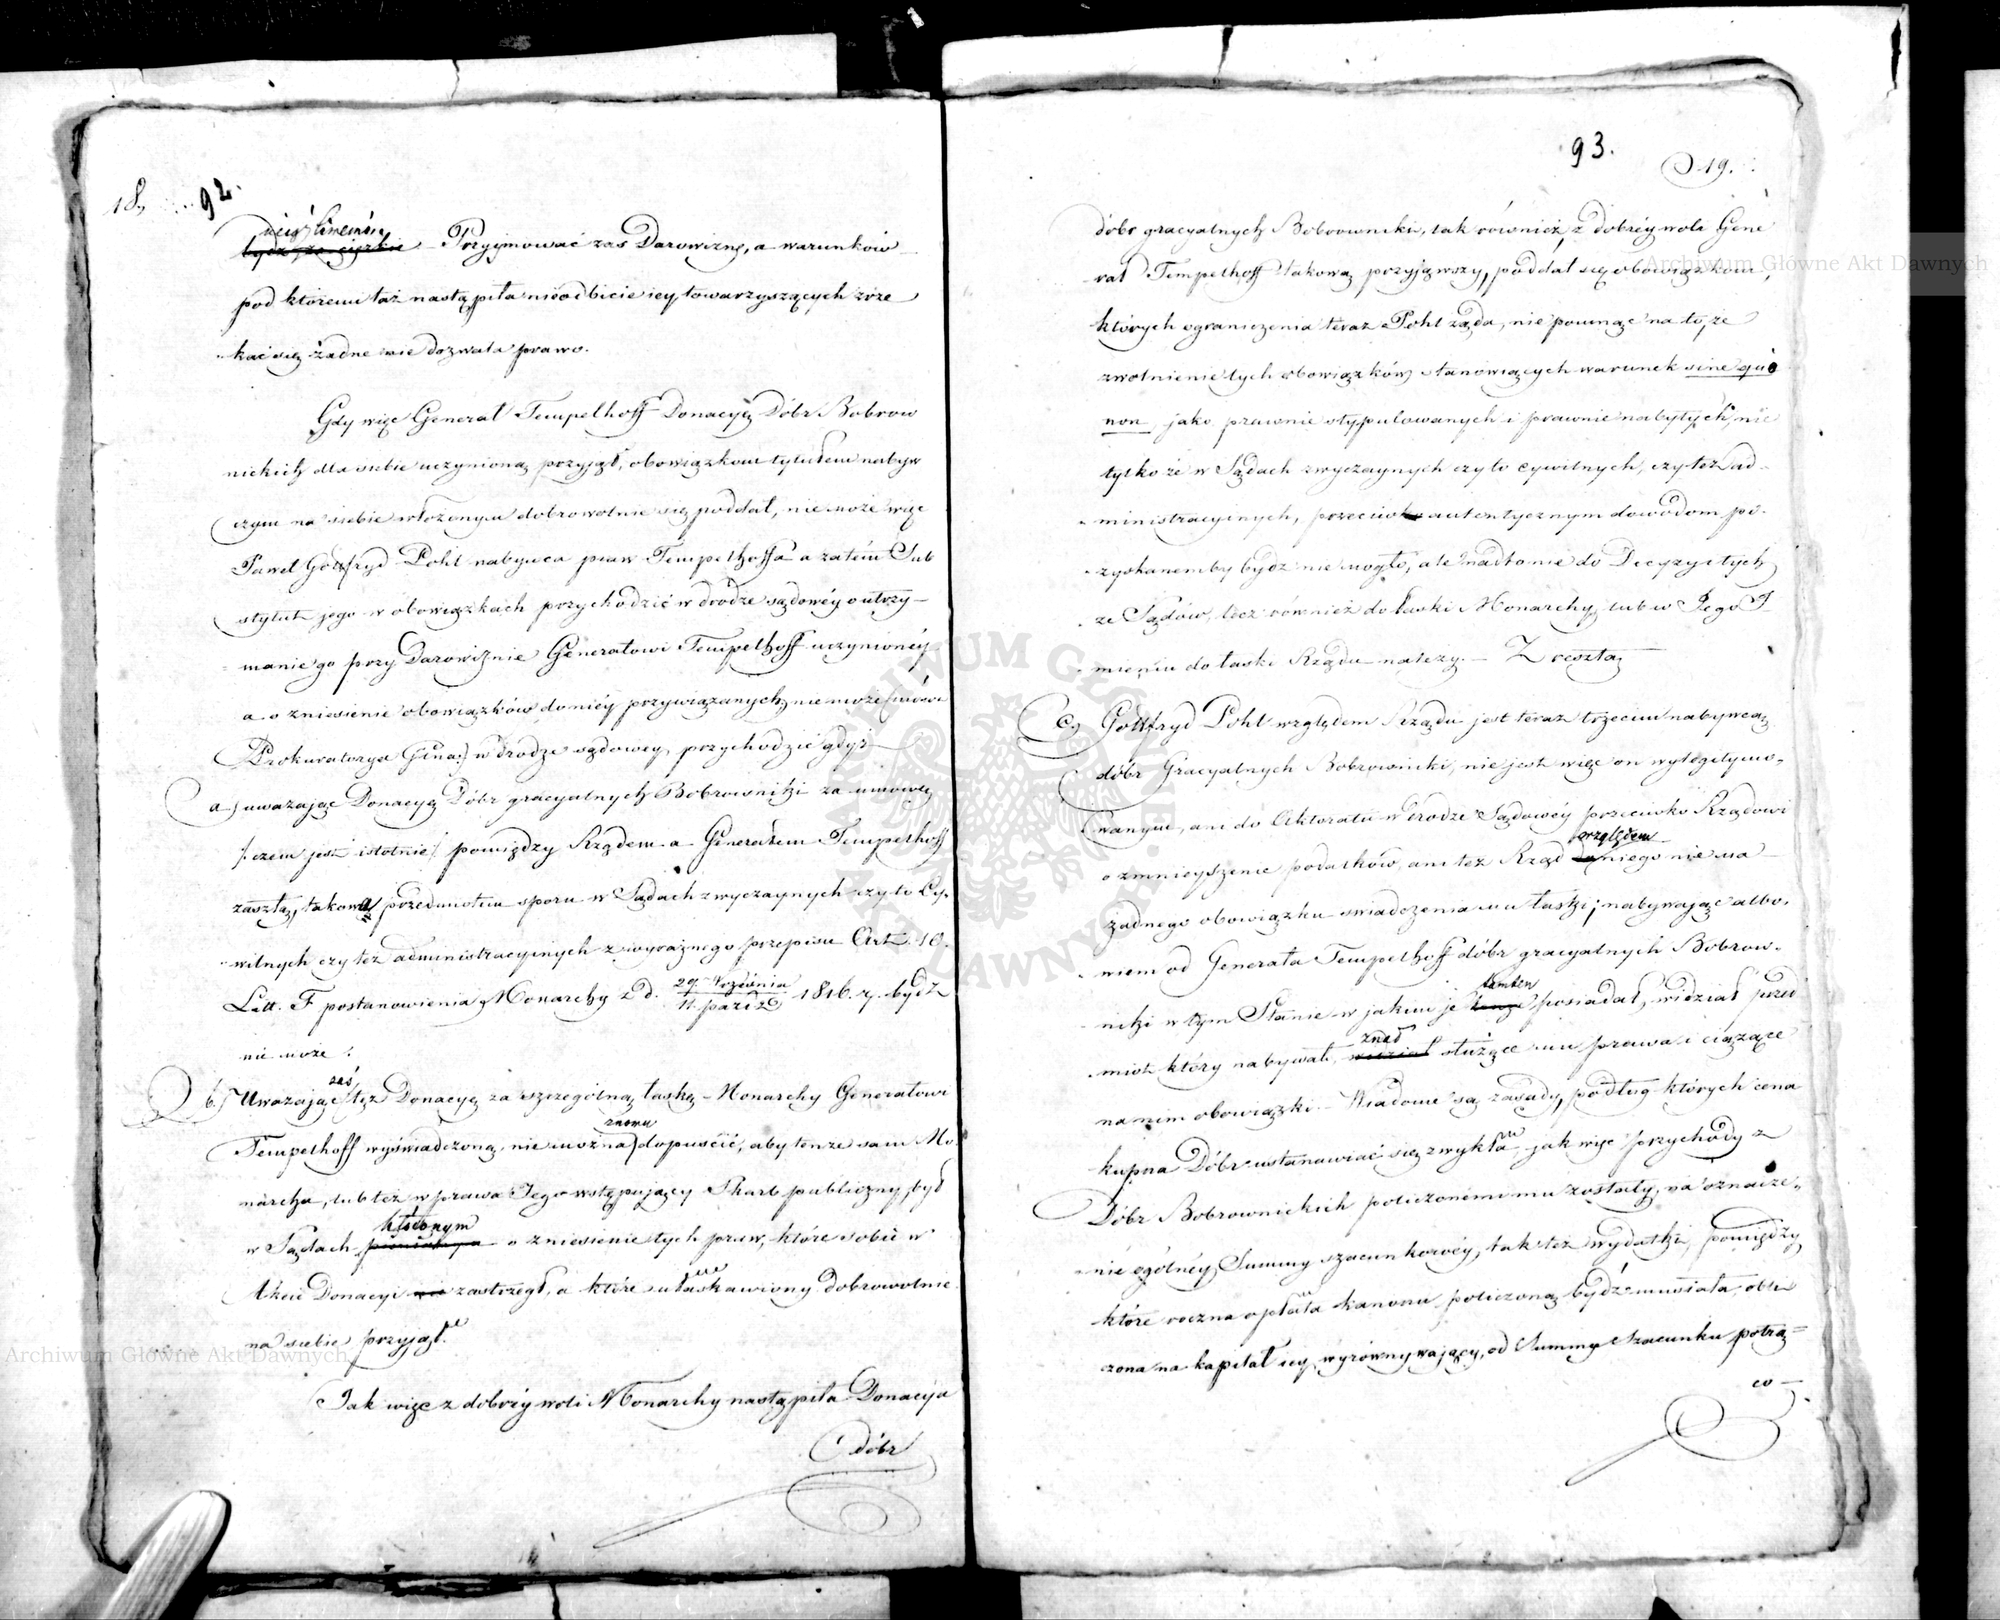 18.
92.
uciążliwemi,
bydź za ciężkie – Przyjmować zaś Darowiznę, a warunków
pod któremi taż nastąpiła nieodbicie iey towarzyszących zrze
kać się żadne nie dozwala prawo.
Gdy więc Generał Tempelhoff Donacyę Dóbr Bobrow
nickich dla siebie uczynioną przyjął, obowiązkom tytułem nabyw
czym na siebie włożonym dobrowolnie się poddał, nie może więc
Paweł Gottfryd Pohl nabywca praw Tempelhoffa a zatém Sub
stytut jego w obowiązkach przychodzić w drodze sądowéy o utrzy–
manie go przy Darowiznie Generałowi Tempelhoff uczynionéy
a o zniesienie obowiązków do niéy przywiązanych, nie może
Prokuratorya Gnral: w drodze sądowey, przychodzić gdyż
a) uważając Donacyę Dóbr gracyalnych Bobrowniki za umowę
/: czem jest istotnie :/ pomiędzy Rządem a Generałem Tempelhoff
zaszłą, takowa przedmiotem sporu w Sądach zwyczaynych czy to Cy-
wilnych czy też administracyinych z wyraźnego przepisu Art. 10.
Litt. F postanowienia Monarchy z d. 29. Września / 11. paźdz 1816. r. bydź
nie może.
zaś
b.) Uważając też Donacyę za szczególną łaskę Monarchy Generałowi
znowu
Tempelhoff wyświadczoną, nie można dopuścić, aby tenże sam Mo
narcha, lub też w prawa Jego wstępujący Skarb publiczny, był
kłóconym
w Sądach o zniesienie tych praw, które sobie w
Akcie Donacyi zastrzegł, a które ułaskawiony dobrowolnie
na siebie przyjął.
Jak więc z dobréy woli Monarchy nastąpiła Donacyja
dóbr
93.
19.
dóbr gracyalnych Bobrowniki, tak również z dobréy woli Gene
rał Tempelhoff takową przyjąwszy, poddał się obowiązkom,
których ograniczenia teraz Pohl żąda, nie pomnąc na to, że
zwolnienie tych obowiązków stanowiących warunek sine qua
non jako prawnie stypulowanych i prawnie nabytych, nie
tylko że w Sądach zwyczaynych czy to cywilnych, czy też ad-
ministracyinych, przeciwko autentycznym dowodom po-
zyskanemby bydź nie mogło, ale nadto nie do Decyzyi tych
że Sądów, lecz również do łaski Monarchy, lub w Jego I
mieniu do łaski Rządu należy. – Z resztą
c) Gottfryd Pohl względem Rządu jest teraz trzecim nabywcą
dóbr Gracyalnych Bobrowniki, nie jest więc on wylegitymo-
wanym, ani do Aktoratu w drodze Sądowéy przeciwko Rządowi
względem
o zmnieyszenie podatków, ani też Rząd niego nie ma
żadnego obowiązku świadczenia mu łaski; nabywając albo-
wiem od Generała Tempelhoff dóbr gracyalnych Bobrow-
tamten
niki w tym Stanie w jakim je posiadał, widział przed
znał
miot który nabywał, widział służące mu prawa i ciążące
na nim obowiązki – Wiadome są zasady, podług których cena
kupna Dóbr ustanawiać się zwykła, jak więc przychody z
Dóbr Bobrownickich policzonémi mu zostały, na oznacze-
nie ogólnéy Summy szacunkowéy, tak też wydatki, pomiędzy
które roczna opłata kanonu policzoną bydź musiała, obli
czona na kapitał iey wyrównywający, od Summy Szacunku potrą=
co –